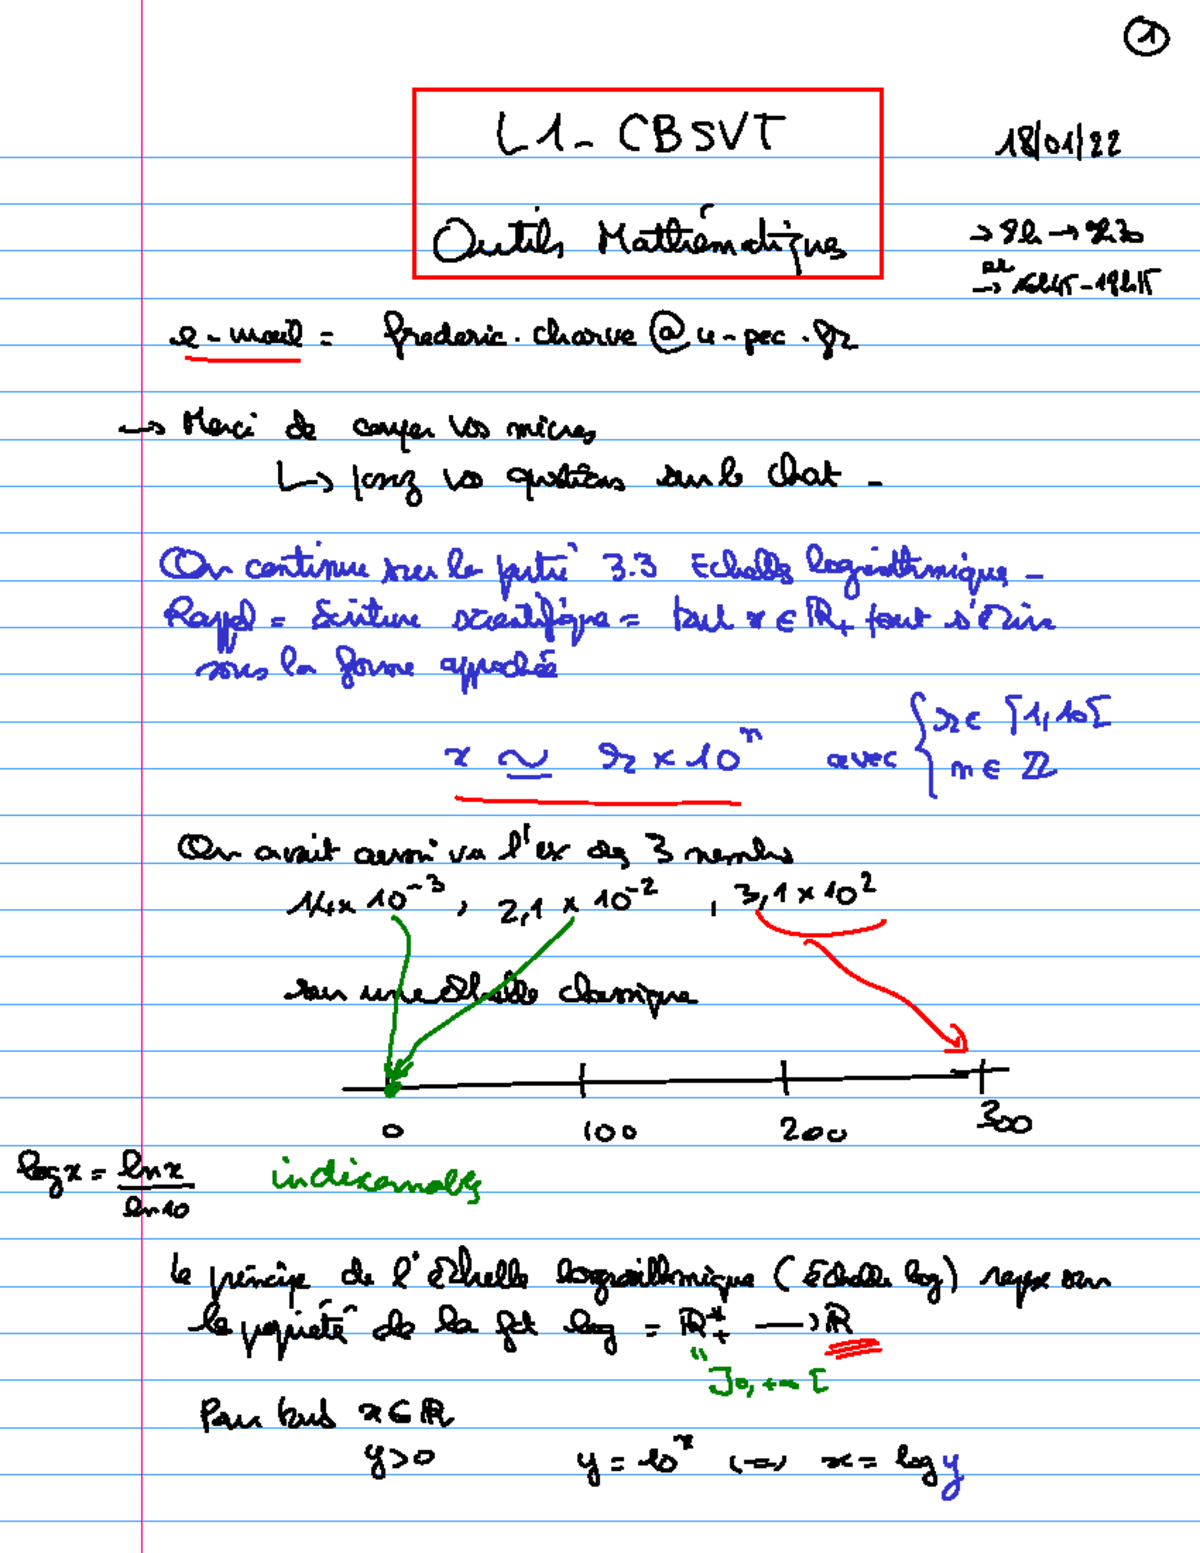 1
L1- CBSVT
18/01/22
Outils Mathématiques
→ 8h → 9h30
→ 16h45 - 18h15
e-mail = frederic.charve@u-pec.fr
→ Merci de couper vos micros
↳ posez vos questions sur le chat -
On continue sur la partie 3.3 Echelles logarithmique -
Rappel = Ecriture scientifique = tout x ∈ ℝ+ peut s'écrire
sous la forme approchée
x ≃ r × 10^n avec { r ∈ [1,10[
n ∈ ℤ
On avait aussi vu l'ex des 3 nombres
× 10^-3 , 2,1 × 10^-2 , 3,1 × 10^2
sur une échelle classique
0 100 200 300
log x = ln x / ln 10
indiscernables
Le principe de l'échelle logarithmique (Echelle log) repose sur
la propriété de la fct log = ℝ+* → ℝ
"
]0,+∞[
Pour tous x ∈ ℝ
y > 0 y = 10^x ⟺ x = log y